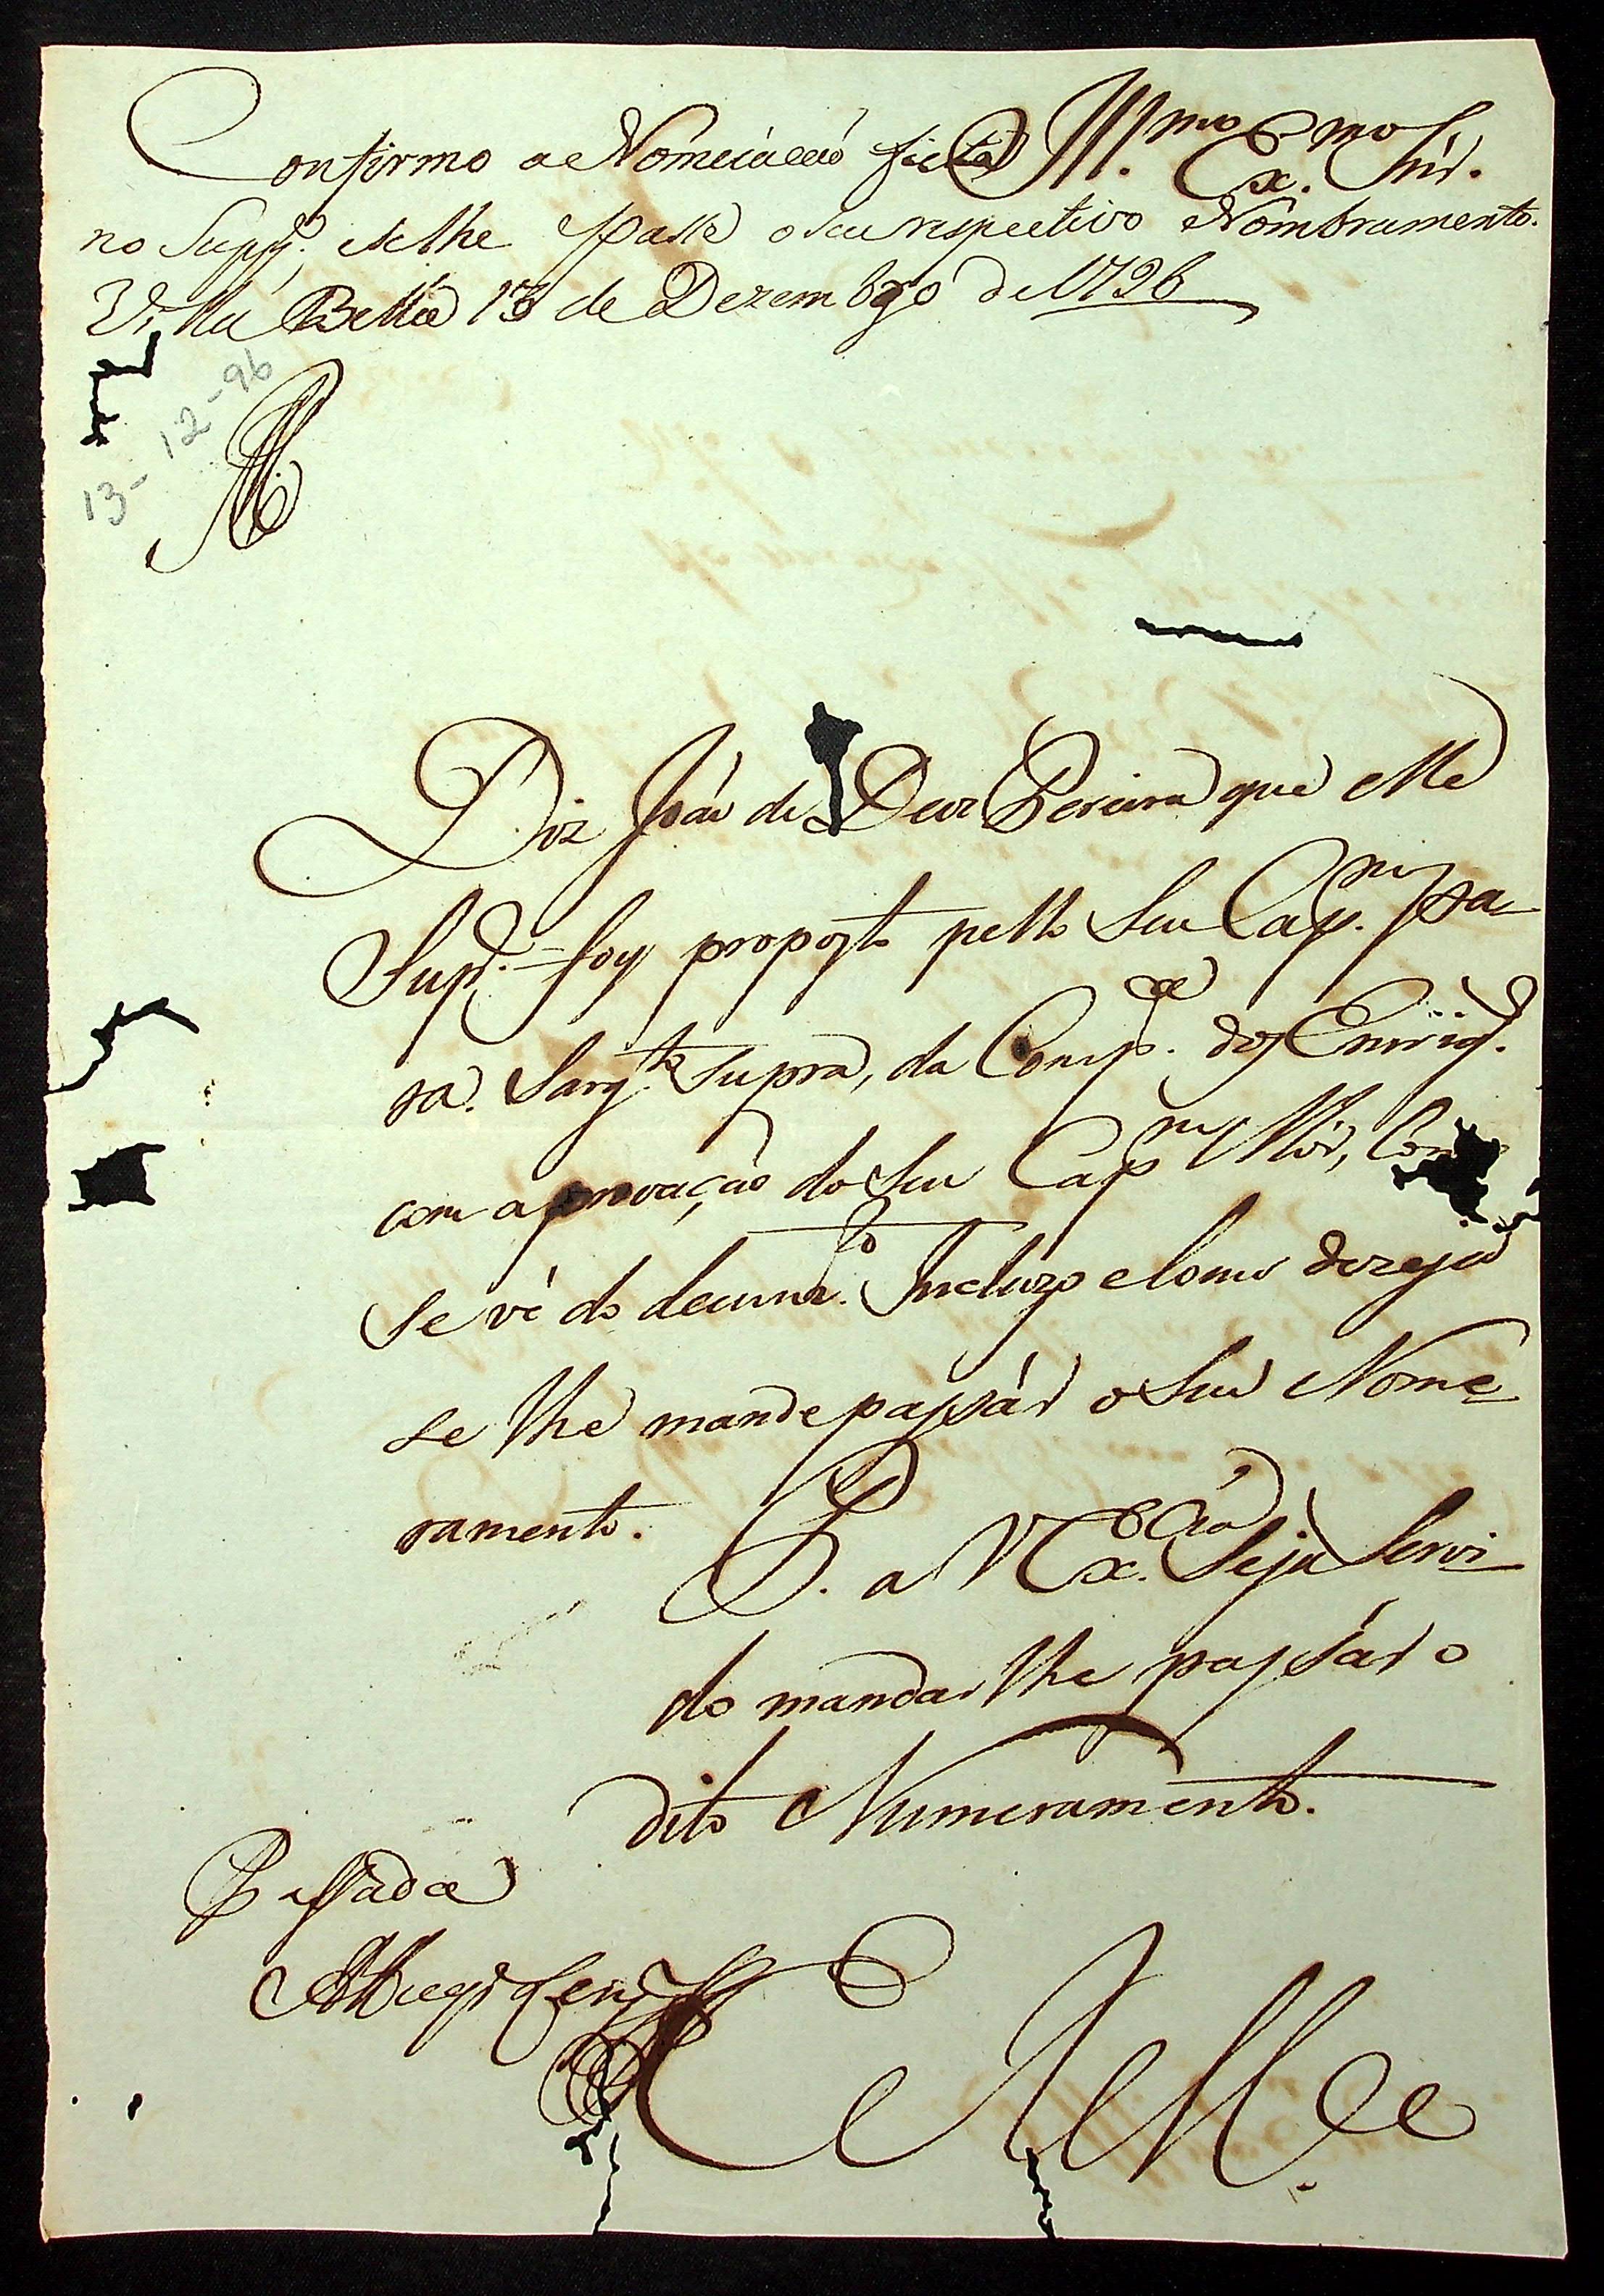 Confirmo a Nomeiacaó feita Ill.mo Ex.mo Snr.
no Supp.e e se lhe passe o seu respectivo Nombramento.
Villa Bella 13 de Dezembro de 1796
13-12-96
Diz Joáo de Deoz Pereira que elle
Sup.e foy propozto pello Seu Cap.m pa-
ra Sarg.to Supra, da Comp.a doz
com aprovação do Seu Cap.m Mór, Com
Se vê do docum.to Incluzo e Como dezeja
se lhe mande passár o Seu Nome
ramento.
P. a V Ex.cia Seja Servi
do mandar lhe passár o
dito Numeramento.
Passada
E R M.ce